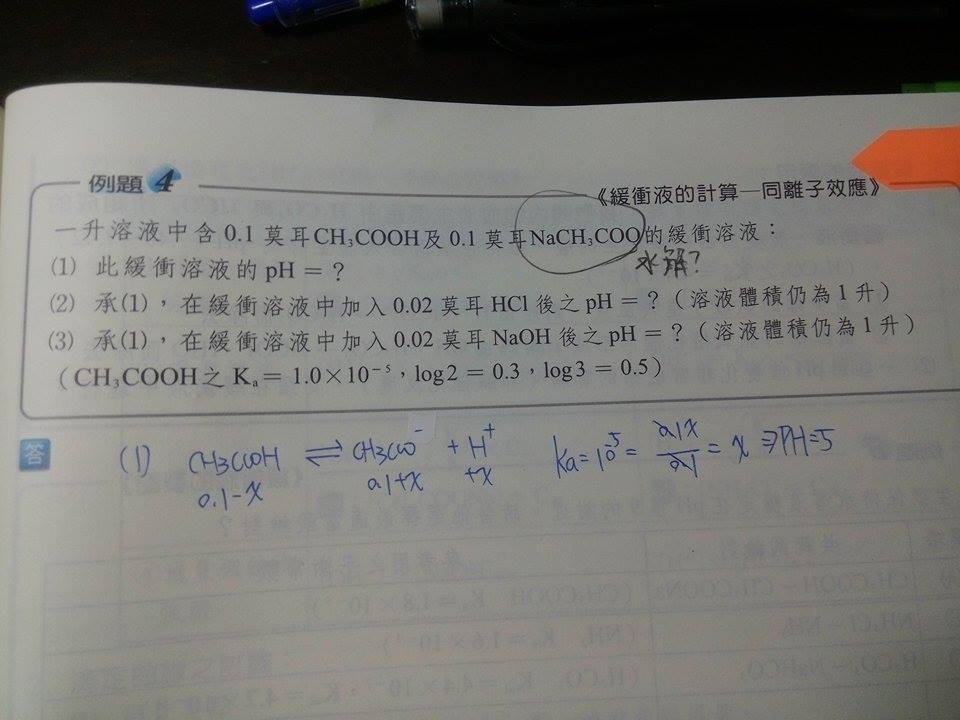 例題 4
《緩衝液的計算—同離子效應》
一升溶液中含 0.1 莫耳 CH₃COOH 及 0.1 莫耳 NaCH₃COO 的緩衝溶液：
水解?
(1) 此緩衝溶液的 pH = ？
(2) 承(1)，在緩衝溶液中加入 0.02 莫耳 HCl 後之 pH = ？（溶液體積仍為 1 升）
(3) 承(1)，在緩衝溶液中加入 0.02 莫耳 NaOH 後之 pH = ？（溶液體積仍為 1 升）
（CH₃COOH 之 Kₐ = 1.0×10⁻⁵，log2 = 0.3，log3 = 0.5）
答 (1) CH3COOH ⇌ CH3COO⁻ + H⁺ Ka = 10⁻⁵ = 0.1x/0.1 = x ⇒ PH=5
0.1-x 0.1+x +x